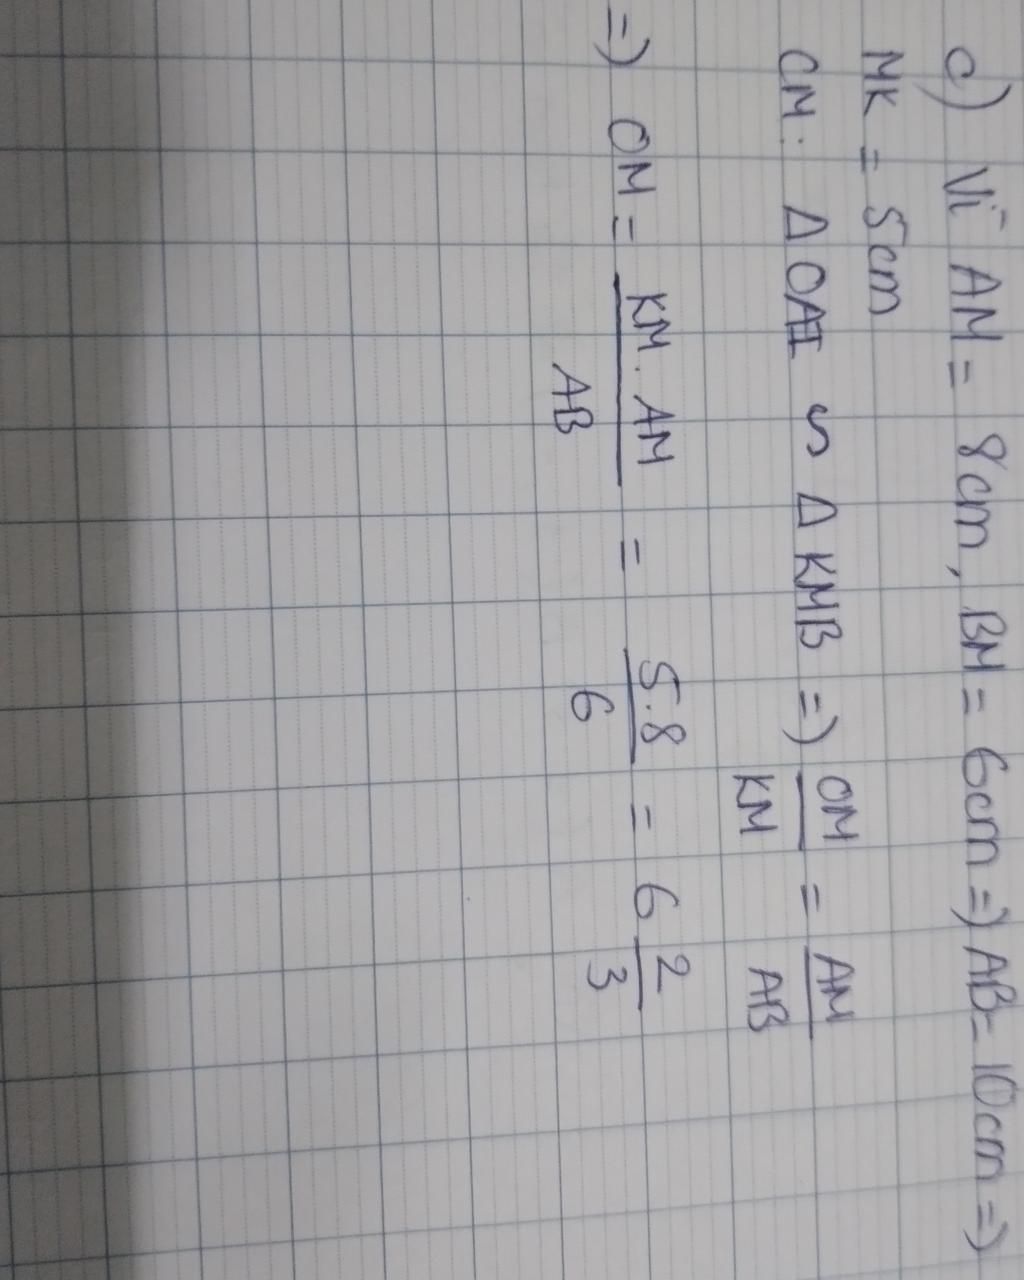 c) Vì AM = 8cm, BM = 6cm => AB = 10cm =>
MK = 5cm
CM: Δ OAI ∽ Δ KMB => OM/KM = AM/AB
=> OM = KM . AM/AB = 5.8/6 = 6 2/3